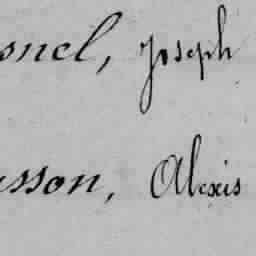 snel, Joseph
sson, Alexis